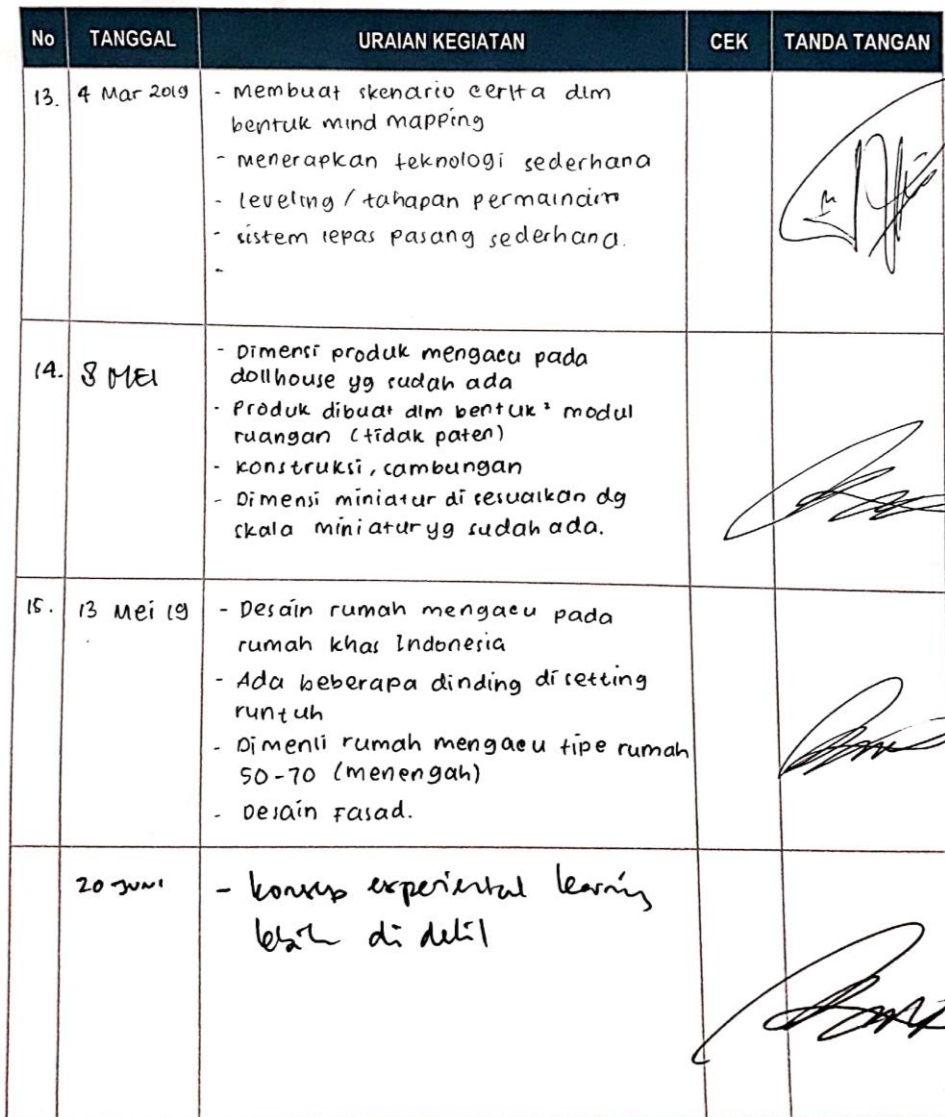 No TANGGAL URAIAN KEGIATAN CEK TANDA TANGAN
13. 4 Mar 2019 - Membuat skenario cerita dlm
bentuk mind mapping
- menerapkan teknologi sederhana
- leveling / tahapan permainan
- sistem lepas pasang sederhana.
-
14. 8 MEI - Dimensi produk mengacu pada
dollhouse yg sudah ada
- Produk dibuat dlm bentuk² modul
ruangan (tidak paten)
- konstruksi, sambungan
- Dimensi miniatur di sesuaikan dg
skala miniatur yg sudah ada.
15. 13 Mei 19 - Desain rumah mengacu pada
rumah khas Indonesia
- Ada beberapa dinding di setting
runtuh
- Dimensi rumah mengacu tipe rumah
50-70 (menengah)
- Desain Fasad.
20 JUNI - konsep experiental learning
lebih di detil